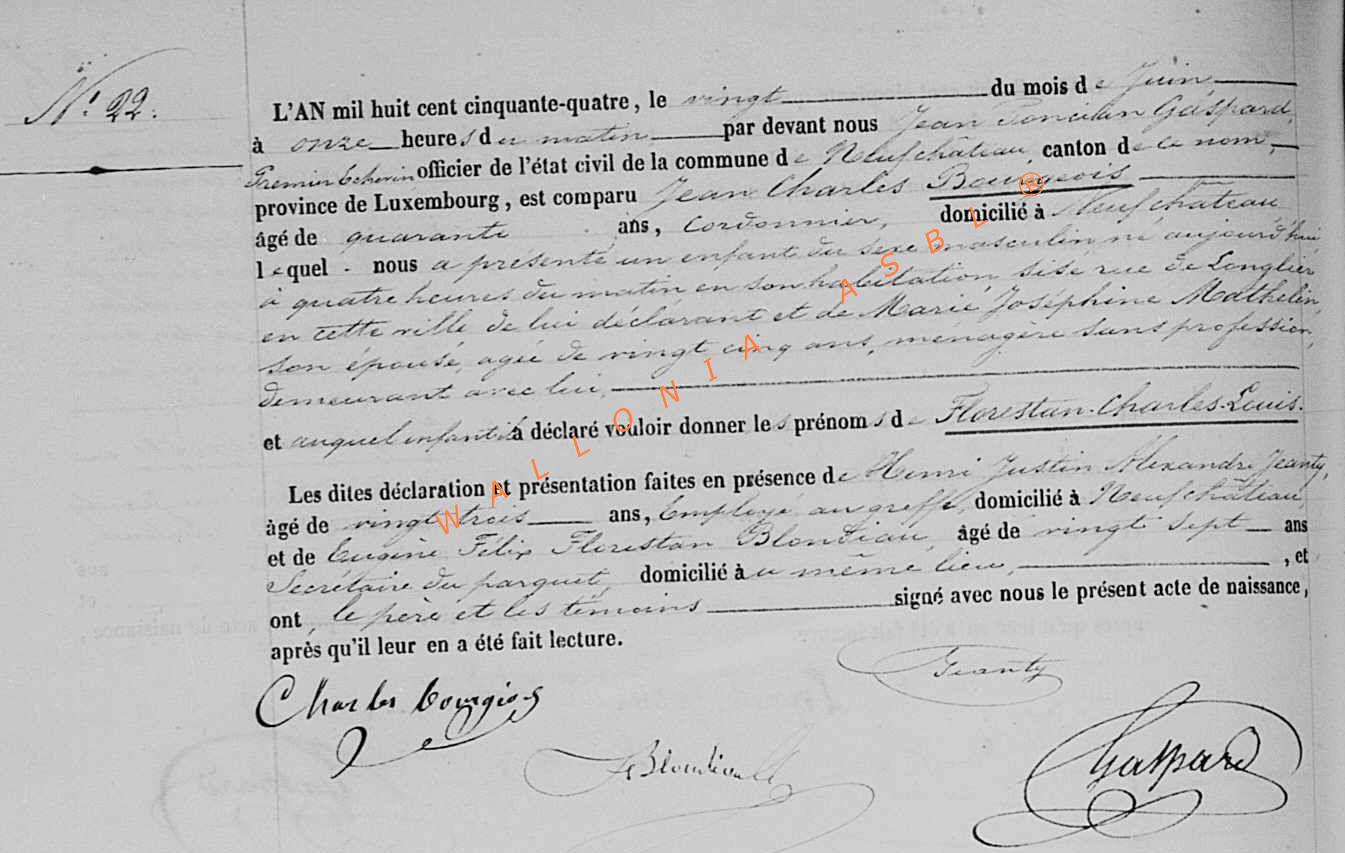 N° 22.
L'AN mil huit cent cinquante-quatre, le vingt du mois de Juin
à onze heures du matin par devant nous Jean Poncilan Gaspard,
Premier Echevin officier de l'état civil de la commune de Neufchateau, canton de ce nom,
province de Luxembourg, est comparu Jean Charles Bourgeois
âgé de quarante ans, Cordonnier, domicilié à Neufchateau
lequel nous a présenté un enfant du sexe masculin, né aujourd'hui
à quatre heures du matin en son habitation, sise rue de Longlier
en cette ville de lui déclarant et de Marie Joséphine Mathelin,
son épouse, agée de vingt cinq ans, ménagère sans profession,
demeurant avec lui,
et auquel enfant il à déclaré vouloir donner les prénoms de Florestan-Charles-Louis.
Les dites déclaration et présentation faites en présence de Henri Justin Alexandre Jeanty,
âgé de vingt trois ans, Employé au greffe, domicilié à Neufchâteau,
et de Eugène Félix Florestan Blondiau, âgé de vingt sept ans
Secrétaire du parquet, domicilié au même lieu, , et
ont, le père et les témoins signé avec nous le présent acte de naissance,
après qu'il leur en a été fait lecture.
Jeanty
Charles bourgios
Blondiau
Gaspard
WALLONIA ASBL ®